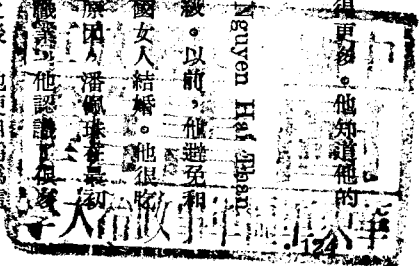 得更多。他知道他的
Nguyen Hai Than
級。以前,他避免和
國女人結婚。他很吃
原因,潘佩珠在最初
職業,他認識了很多
學大治政
124